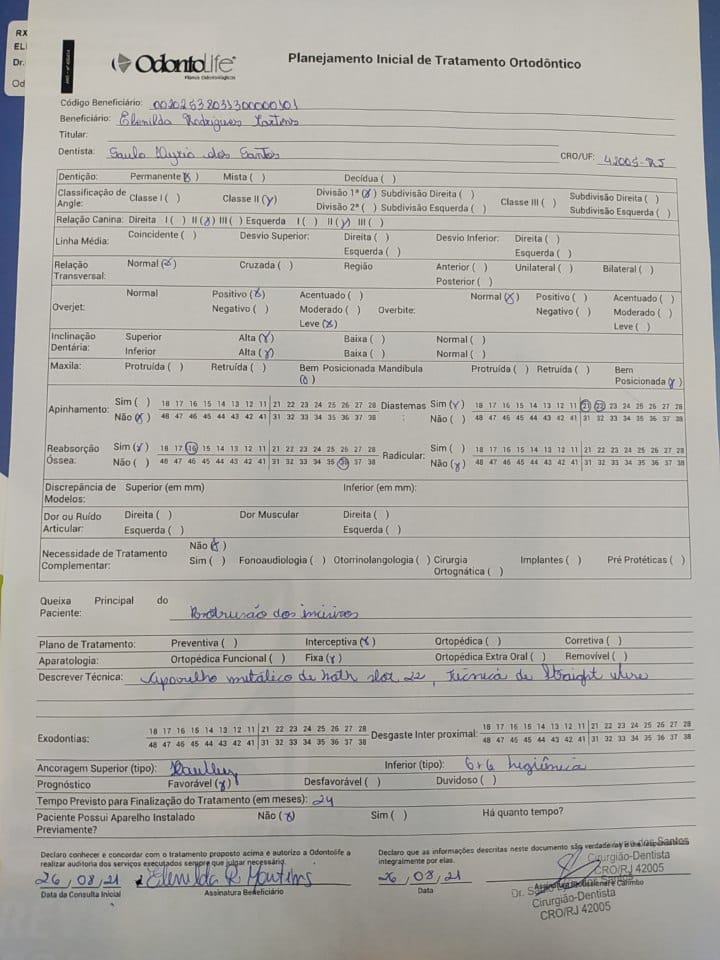 RX
ELE
Dr.
Od
OdontoLife
Planos Odontológicos
Planejamento Inicial de Tratamento Ortodôntico
Código Beneficiário: 00202538031300000101
Beneficiário: Elenilda Rodrigues Martins
Titular:
Dentista: Saulo dos Santos CRO/UF: 42005-RJ
Dentição: Permanente (x) Mista ( ) Decídua ( )
Classificação de Angle: Classe I ( ) Classe II (x) Divisão 1ª (x) Subdivisão Direita ( ) Classe III ( ) Subdivisão Direita ( )
Divisão 2ª ( ) Subdivisão Esquerda ( ) Subdivisão Esquerda ( )
Relação Canina: Direita I ( ) II (x) III ( ) Esquerda I ( ) II (x) III ( )
Linha Média: Coincidente ( ) Desvio Superior: Direita ( ) Desvio Inferior: Direita ( )
Esquerda ( ) Esquerda ( )
Relação Transversal: Normal (x) Cruzada ( ) Região Anterior ( ) Unilateral ( ) Bilateral ( )
Posterior ( )
Overjet: Normal Positivo (x) Acentuado ( ) Overbite: Normal (x) Positivo ( ) Acentuado ( )
Negativo ( ) Moderado ( ) Negativo ( ) Moderado ( )
Leve (x) Leve ( )
Inclinação Dentária: Superior Alta (x) Baixa ( ) Normal ( )
Inferior Alta (x) Baixa ( ) Normal ( )
Maxila: Protruída ( ) Retruída ( ) Bem Posicionada (x) Mandíbula Protruída ( ) Retruída ( ) Bem Posicionada (x)
Apinhamento: Sim ( ) 18 17 16 15 14 13 12 11 21 22 23 24 25 26 27 28 Diastemas: Sim (x) 18 17 16 15 14 13 12 11 21 22 23 24 25 26 27 28
Não (x) 48 47 46 45 44 43 42 41 31 32 33 34 35 36 37 38 Não ( ) 48 47 46 45 44 43 42 41 31 32 33 34 35 36 37 38
Reabsorção Óssea: Sim (x) 18 17 16 15 14 13 12 11 21 22 23 24 25 26 27 28 Radicular: Sim ( ) 18 17 16 15 14 13 12 11 21 22 23 24 25 26 27 28
Não ( ) 48 47 46 45 44 43 42 41 31 32 33 34 35 36 37 38 Não (x) 48 47 46 45 44 43 42 41 31 32 33 34 35 36 37 38
Discrepância de Modelos: Superior (em mm) Inferior (em mm):
Dor ou Ruído Articular: Direita ( ) Dor Muscular Direita ( )
Esquerda ( ) Esquerda ( )
Necessidade de Tratamento Complementar: Não (x)
Sim ( ) Fonoaudiologia ( ) Otorrinolangologia ( ) Cirurgia Ortognática ( ) Implantes ( ) Pré Protéticas ( )
Queixa Principal do Paciente: Protrusão dos incisivos
Plano de Tratamento: Preventiva ( ) Interceptiva (x) Ortopédica ( ) Corretiva ( )
Aparatologia: Ortopédica Funcional ( ) Fixa (x) Ortopédica Extra Oral ( ) Removível ( )
Descrever Técnica: Aparelho metálico de Roth slot 22, Técnica de Straight wire
Exodontias: 18 17 16 15 14 13 12 11 21 22 23 24 25 26 27 28 Desgaste Inter proximal: 18 17 16 15 14 13 12 11 21 22 23 24 25 26 27 28
48 47 46 45 44 43 42 41 31 32 33 34 35 36 37 38 48 47 46 45 44 43 42 41 31 32 33 34 35 36 37 38
Ancoragem Superior (tipo): Inferior (tipo): 6x6 higiênica
Prognóstico Favorável (x) Desfavorável ( ) Duvidoso ( )
Tempo Previsto para Finalização do Tratamento (em meses): 24
Paciente Possui Aparelho Instalado Previamente? Não (x) Sim ( ) Há quanto tempo?
Declaro conhecer e concordar com o tratamento proposto acima e autorizo a Odontolife a realizar auditoria dos serviços executados sempre que julgar necessário.
Declaro que as informações descritas neste documento são verdadeiras e me responsabilizo integralmente por elas.
26/08/21 Elenilda R Martins
Data da Consulta Inicial Assinatura Beneficiário
26/08/21
Data Assinatura Profissional e Carimbo
dos Santos
Cirurgião-Dentista
CRO/RJ 42005
Dr. Saulo dos Santos
Cirurgião-Dentista
CRO/RJ 42005